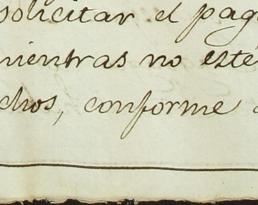 solicitar el pag
mientras no esté
chos, conforme